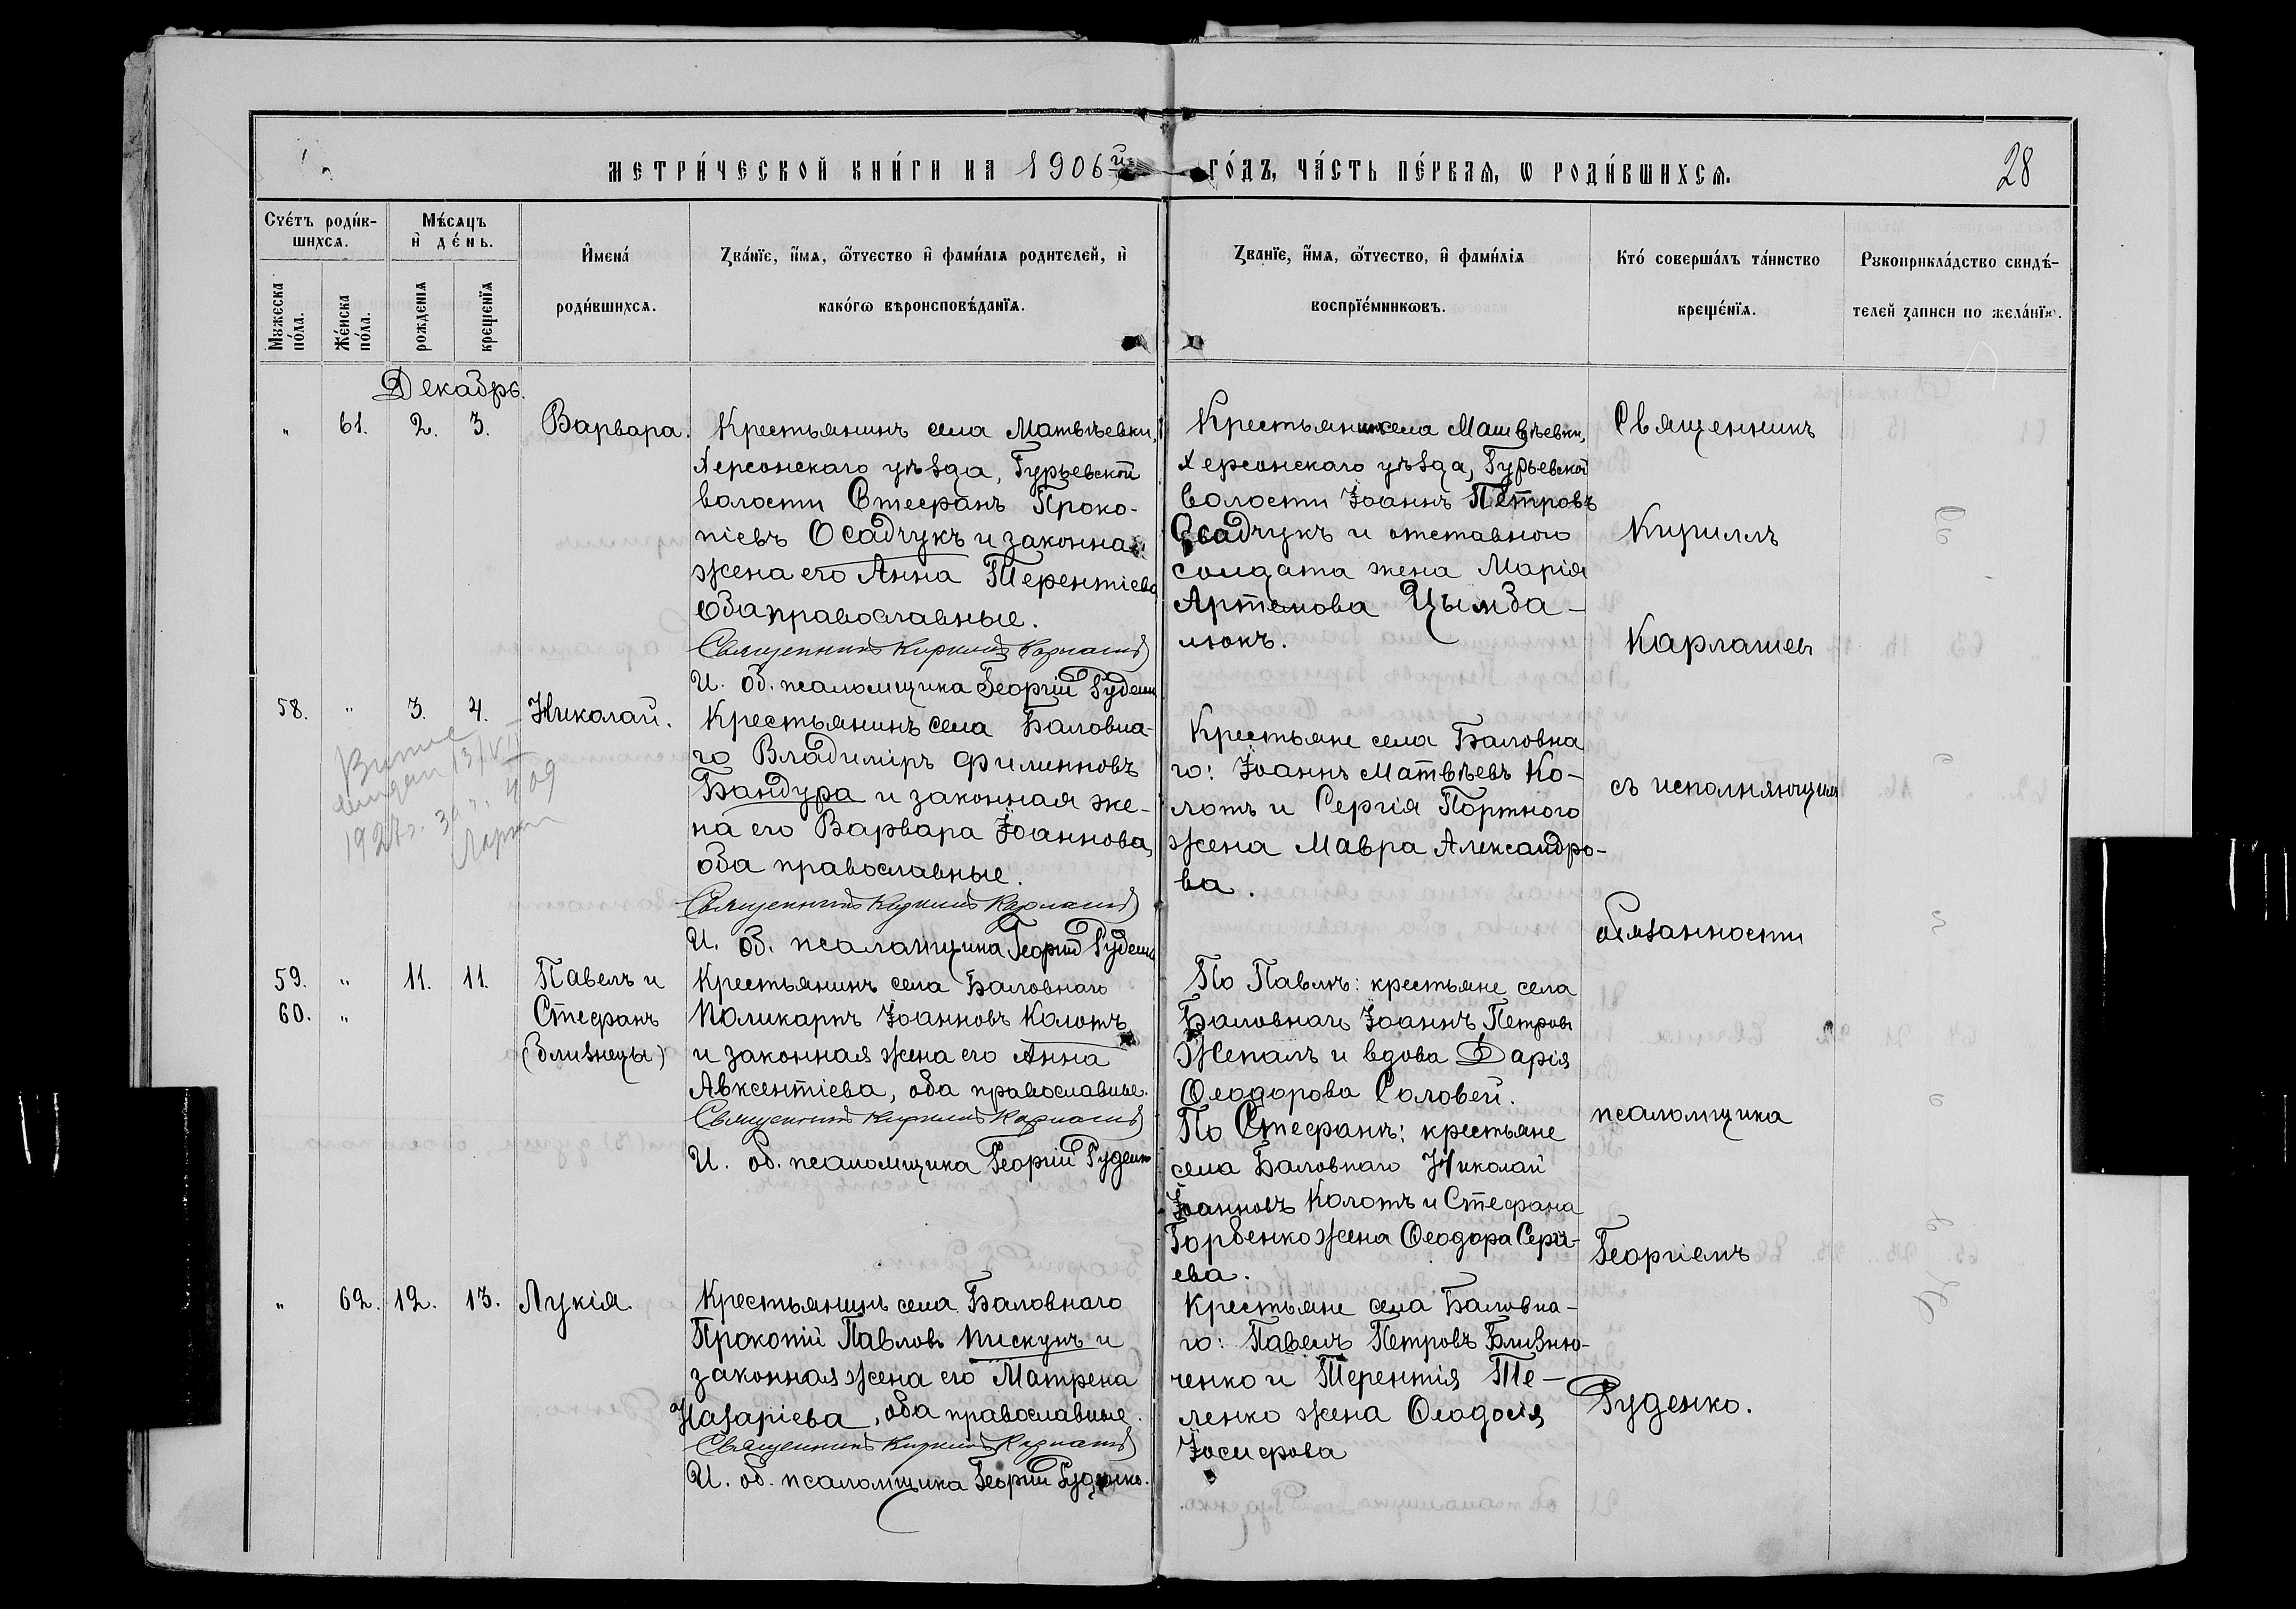 метри́ческой кни́ги на 1906й
го́дъ, ча́сть пе́рваѧ, ѡ роди́вшихсѧ.
28
Счє́тъ роди́в-
шихсѧ.
Мужеска по́ла.
Же́нска по́ла.
Мѣ́сѧцъ
и҆ де́нь.
рожденїѧ
крещенїѧ
И҆мена́
роди́вшихсѧ.
Зва́нїе, и҆́мѧ, ѻ҆́тчество и҆ фами́лїѧ родителей, и҆
како́гѡ вѣроисповѣ́данїѧ.
Зва́нїе, и҆́мѧ, ѻ҆́тчество, и҆ фами́лїѧ
воспрїе́мникѡвъ.
Кто́ соверша́лъ та́инство
креще́нїѧ.
Рукоприкла́дство свидѣ́-
телей записи по жела́нїю.
Декабрь.
" 61. 2. 3. Варвара.
Крестьянинъ села Матвѣевки,
Херсонскаго уѣзда, Гурьевской
волости Стефанъ Проко-
піевъ Осадчукъ и законная
жена его Анна Терентіева
оба православные.
Священникъ Кириллъ Карпашевъ
И. об. псаломщика Георгій Руденко
Крестьянинъ села Матвѣевки,
Херсонскаго уѣзда, Гурьевской
волости Іоаннъ Петровъ
Осадчукъ и отставного
солдата жена Марія
Артемова Цымба-
люкъ.
58. " 3. 4. Николай.
1927г.
Крестьянинъ села Баловна-
го Владиміръ Филипповъ
Бандура и законная же-
на его Варвара Іоаннова,
оба православные.
Священникъ Кириллъ
И. об. псаломщика Георгій Руденко
Крестьяне села Баловна
го: Іоаннъ Матвѣевъ Ко-
лотъ и Сергія Портного
жена Мавра Александро-
ва.
59. " 11. 11. Павелъ и
60. " Стефанъ
(близнецы)
Крестьянинъ села Баловнаго
Поликарпъ Іоанновъ Колотъ
и законная жена его Анна
Авксентіева, оба православные.
Священникъ Кириллъ
И. об. псаломщика Георгій Руденко
По Павлѣ: крестьяне села
Баловнаго Іоаннъ Петровъ
Жепалъ и вдова Дарія
Ѳеодорова Соловей.
По Стефанѣ: крестьяне
села Баловнаго Николай
Іоанновъ Колотъ и Стефана
Горбенко жена Ѳеодора Серги-
ева.
" 62. 12. 13. Лукія.
Крестьянинъ села Баловнаго
Прокопій Павловъ Пискунъ и
законная жена его Матрена
Назаріева, оба православные.
Священникъ Кириллъ
И. об. псаломщика Георгій Руденко.
Крестьяне села Баловна-
го: Павелъ Петровъ Близню-
ченко и Терентія Те-
ленко жена Ѳеодосія
Іосифова
Священникъ
Кириллъ
съ исполняющимъ
обязанности
псаломщика
Георгіемъ
Руденко.